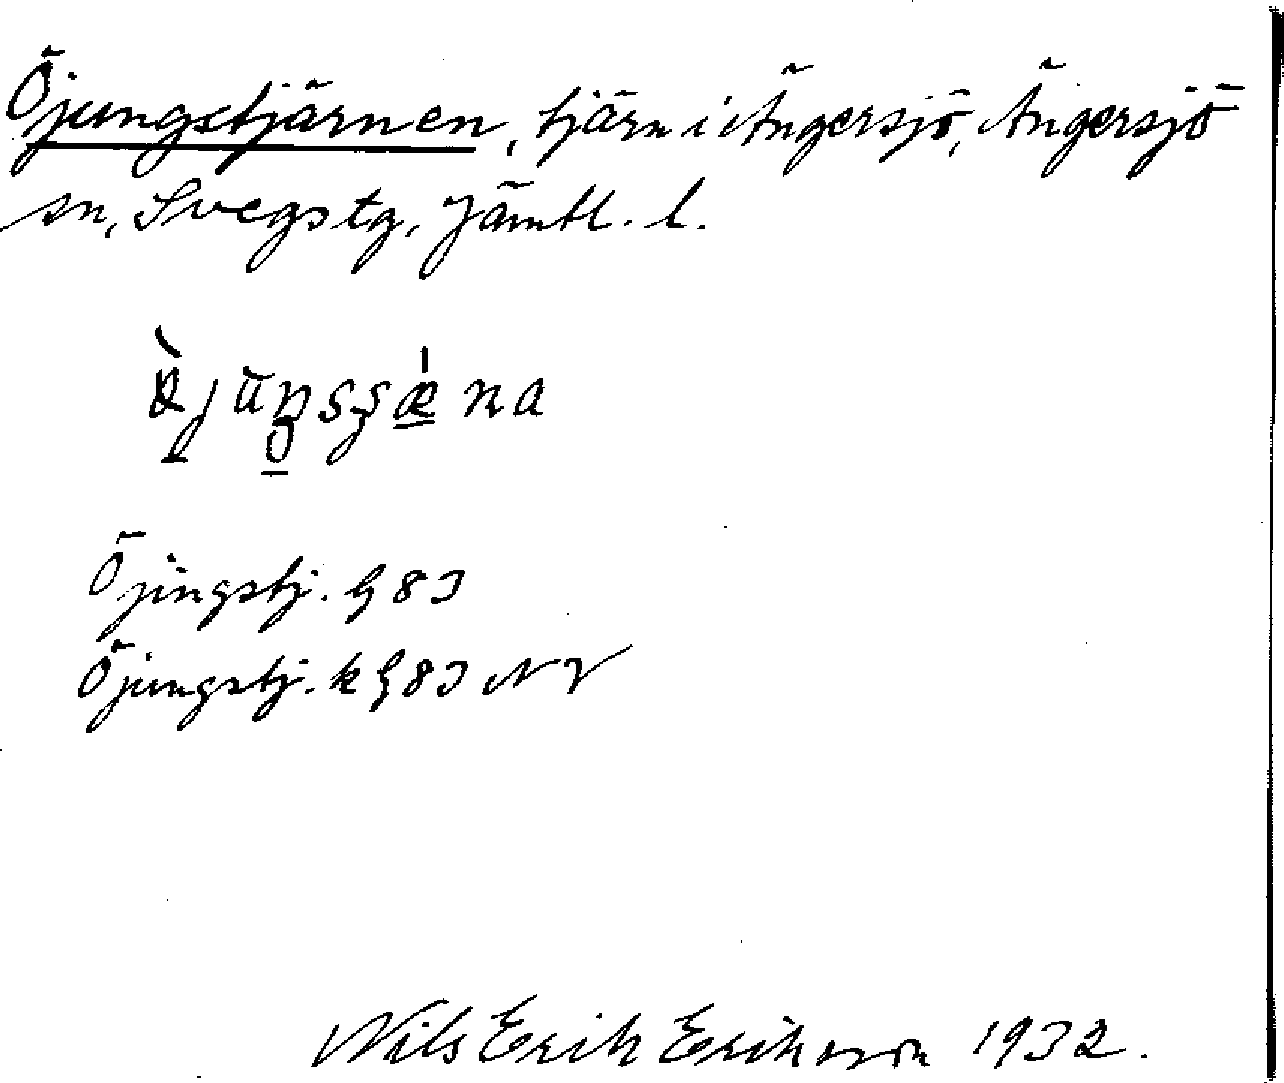 Öjungstjärnen, tjärn i Ängersjö, Ängersjö
sn, Svegs tg, Jämtl. l.
Öjingstj. G 83
Öjungstj. k G 83 NV
Nils Erik Erikson 1932.